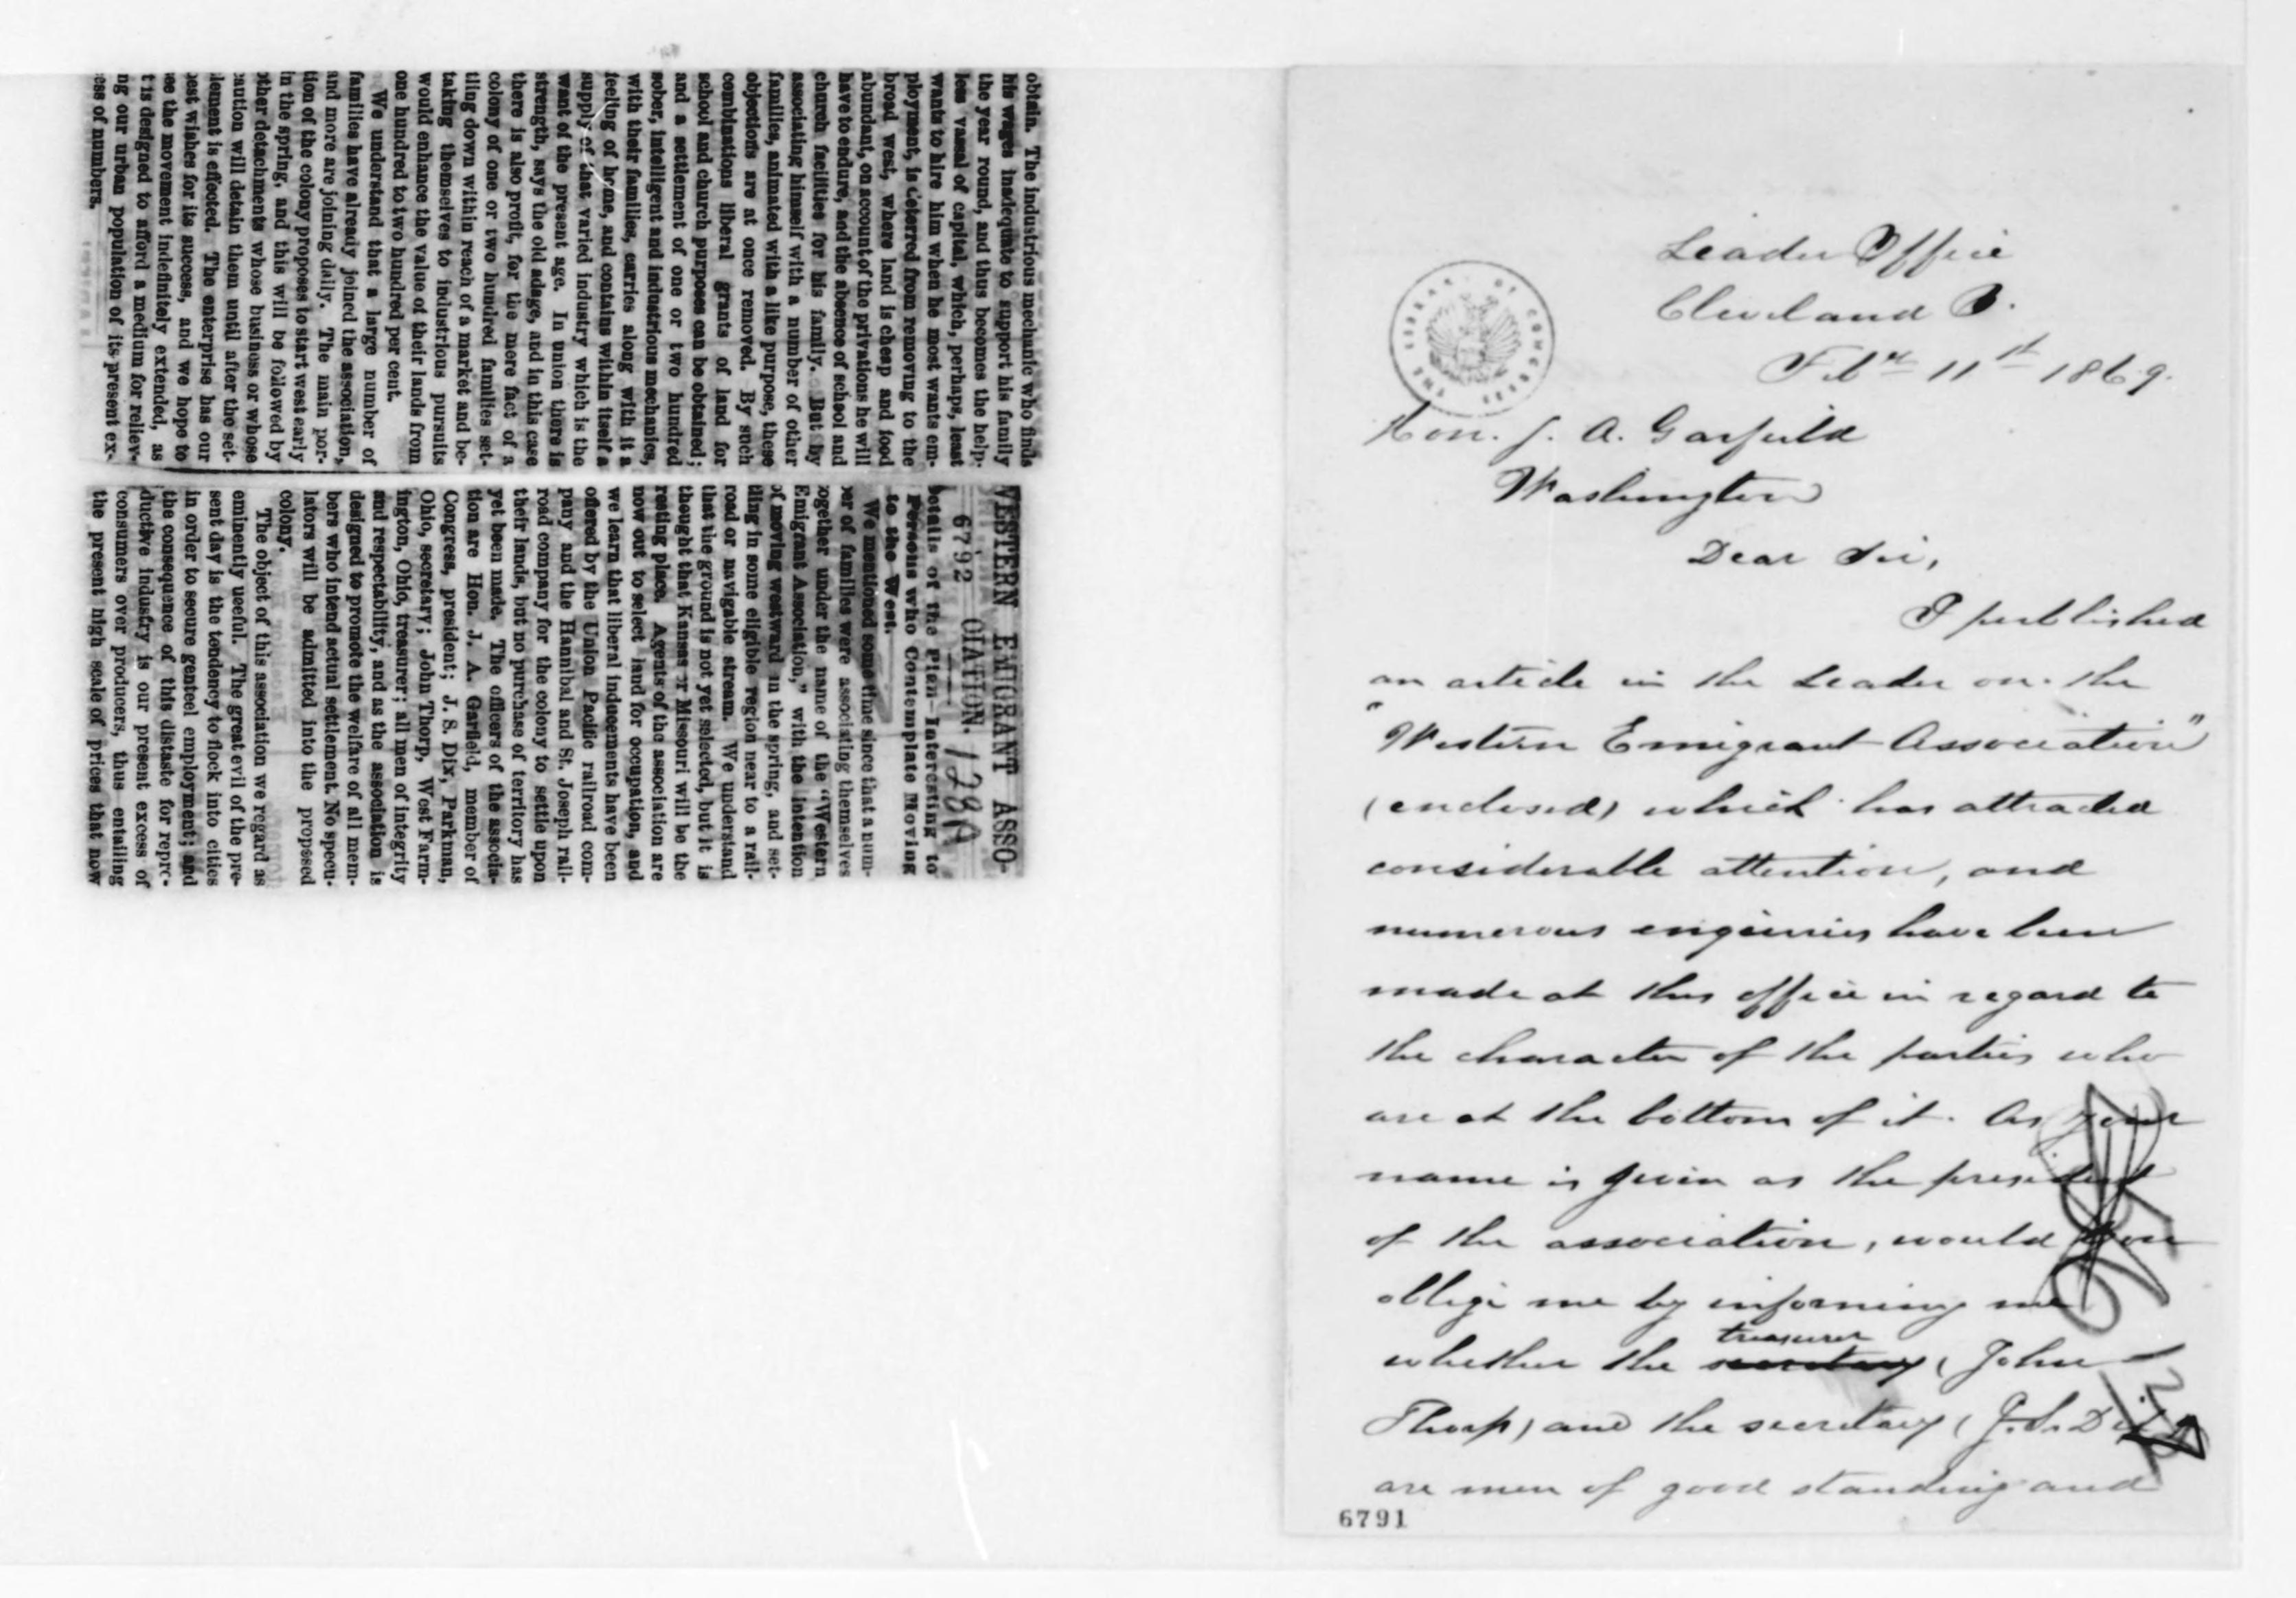 WESTERN EMIGRANT ASSO-
CIATION.
6792
128A
Details of the Plan—Interesting to
Persons who Contemplate Moving
to the West.
We mentioned some time since that a num-
ber of families were associating themselves
together under the name of the "Western
Emigrant Association," with the intention
of moving westward in the spring, and set-
tling in some eligible region near to a rail-
road or navigable stream. We understand
that the ground is not yet selected, but it is
thought that Kansas or Missouri will be the
resting place. Agents of the association are
now out to select land for occupation, and
we learn that liberal inducements have been
offered by the Union Pacific railroad com-
pany and the Hannibal and St. Joseph rail-
road company for the colony to settle upon
their lands, but no purchase of territory has
yet been made. The officers of the associa-
tion are Hon. J. A. Garfield, member of
Congress, president; J. S. Dix, Parkman,
Ohio, secretary; John Thorp, West Farm-
ington, Ohio, treasurer; all men of integrity
and respectability, and as the association is
designed to promote the welfare of all mem-
bers who intend actual settlement. No specu-
lators will be admitted into the proposed
colony.
The object of this association we regard as
eminently useful. The great evil of the pre-
sent day is the tendency to flock into cities
in order to secure genteel employment; and
the consequence of this distaste for repro-
ductive industry is our present excess of
consumers over producers, thus entailing
the present high scale of prices that now
obtain. The industrious mechanic who finds
his wages inadequate to support his family
the year round, and thus becomes the help-
less vassal of capital, which, perhaps, least
wants to hire him when he most wants em-
ployment, is deterred from removing to the
broad west, where land is cheap and food
abundant, on account of the privations he will
have to endure, and the absence of school and
church facilities for his family. But by
associating himself with a number of other
families, animated with a like purpose, these
objections are at once removed. By such
combinations liberal grants of land for
school and church purposes can be obtained;
and a settlement of one or two hundred
sober, intelligent and industrious mechanics,
with their families, carries along with it a
feeling of home, and contains within itself a
supply of that varied industry which is the
want of the present age. In union there is
strength, says the old adage, and in this case
there is also profit, for the mere fact of a
colony of one or two hundred families set-
tling down within reach of a market and be-
taking themselves to industrious pursuits
would enhance the value of their lands from
one hundred to two hundred per cent.
We understand that a large number of
families have already joined the association,
and more are joining daily. The main por-
tion of the colony proposes to start west early
in the spring, and this will be followed by
other detachments whose business or whose
caution will detain them until after the set-
tlement is effected. The enterprise has our
best wishes for its success, and we hope to
see the movement indefinitely extended, as
it is designed to afford a medium for reliev-
ng our urban population of its present ex-
cess of numbers.
Leader Office
Cleveland O.
Feby 11st 1869.
THE LIBRARY OF CONGRESS
Hon. J. A. Garfield
Washington
Dear Sir,
I published
an article in the Leader on the
"Western Emigrant Association"
(enclosed) which has attracted
considerable attention, and
numerous enquiries have been
made at this office in regard to
the character of the parties who
are at the bottom of it. As your
name is given as the president
of the association, would you
oblige me by informing me
treasurer
whether the secretary (John
Thorp) and the secretary (J. S. Dix)
are men of good standing and
6791